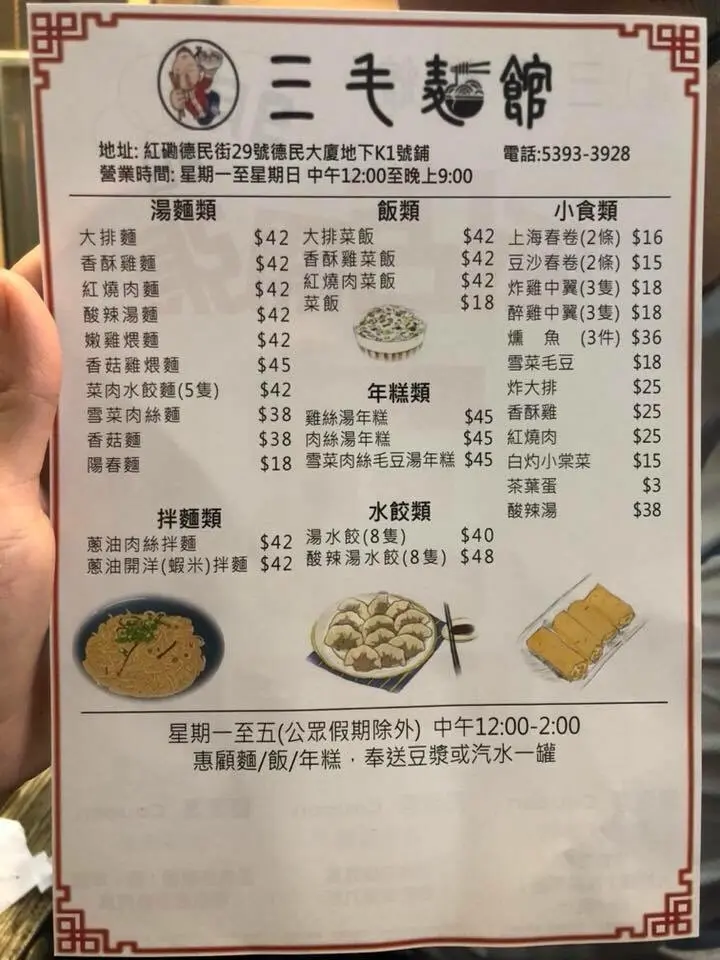 三毛麵館
地址: 紅磡德民街29號德民大廈地下K1號鋪 電話:5393-3928
營業時間: 星期一至星期日 中午12:00至晚上9:00
湯麵類
大排麵 $42
香酥雞麵 $42
紅燒肉麵 $42
酸辣湯麵 $42
嫩雞煨麵 $42
香菇雞煨麵 $45
菜肉水餃麵(5隻) $42
雪菜肉絲麵 $38
香菇麵 $38
陽春麵 $18
拌麵類
蔥油肉絲拌麵 $42
蔥油開洋(蝦米)拌麵 $42
飯類
大排菜飯 $42
香酥雞菜飯 $42
紅燒肉菜飯 $42
菜飯 $18
年糕類
雞絲湯年糕 $45
肉絲湯年糕 $45
雪菜肉絲毛豆湯年糕 $45
水餃類
湯水餃(8隻) $40
酸辣湯水餃(8隻) $48
小食類
上海春卷(2條) $16
豆沙春卷(2條) $15
炸雞中翼(3隻) $18
醉雞中翼(3隻) $18
燻魚 (3件) $36
雪菜毛豆 $18
炸大排 $25
香酥雞 $25
紅燒肉 $25
白灼小棠菜 $15
茶葉蛋 $3
酸辣湯 $38
星期一至五(公眾假期除外) 中午12:00-2:00
惠顧麵/飯/年糕，奉送豆漿或汽水一罐